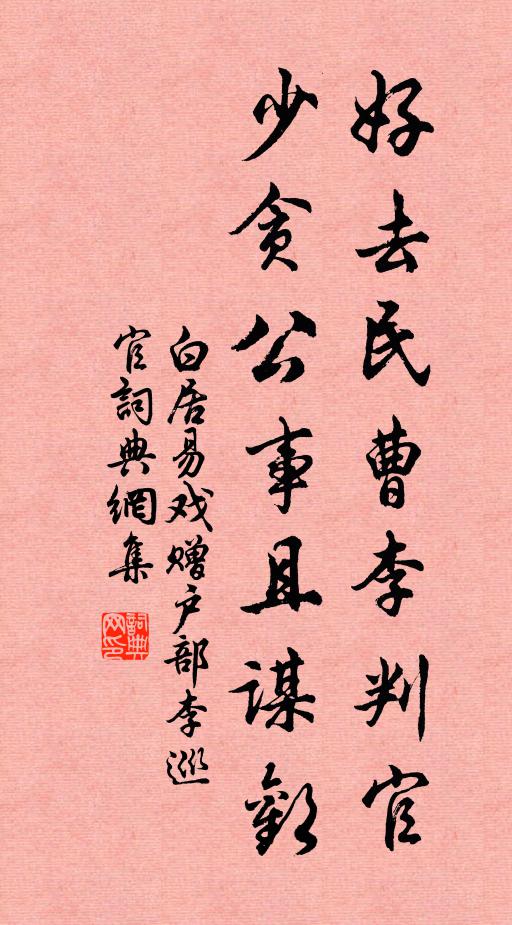 好去民曹李判官
少貪公事且謀歡
白居易戏赠户部李巡
官詞典網集
詞典
网印